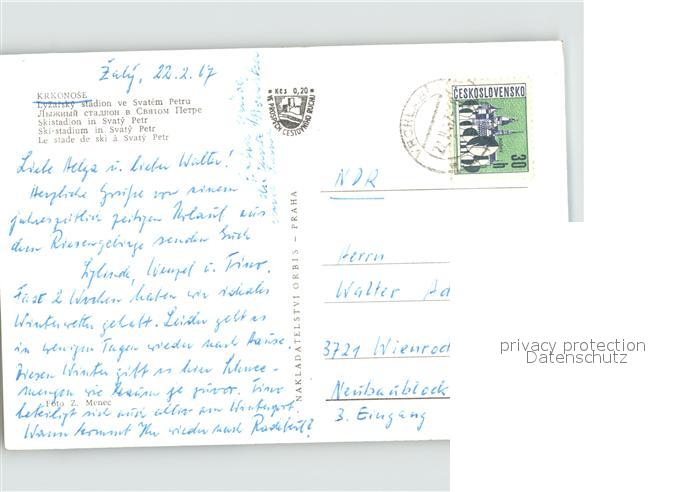 Žalý, 22.2.67
KRKONOŠE
Lyžařský stadion ve Svatém Petru
Лыжный стадион в Святом Петре
Skistadion in Svatý Petr
Ski-stadium in Svatý Petr
Le stade de ski à Svatý Petr
Kčs 0,20
VE PROSPĚCH CESTOVNÍHO RUCHU
VRCHLABÍ
ČESKOSLOVENSKO
30 h
Liebe Helga u. lieber Walter!
Herzliche Grüße von einem
jahreszeitlich Urlaub aus
dem Riesengebirge senden Euch
Wenzel u. Timo.
Fast 2 Wochen haben wir ideales
Winterwetter gehabt. Leider geht es
in wenigen Tagen wieder nach Hause.
Diesen Winter gibt es hier Schnee-
mengen wie kaum je zuvor. Timo
beteiligt sich auch allen am Wintersport.
Wann kommt Ihr wieder nach Radebeul?
Foto Z. Menec
NAKLADATELSTVÍ ORBIS – PRAHA
NDR
Herrn
Walter Ad
3721 Wienrod
Neubaublock
3. Eingang
privacy protection
Datenschutz